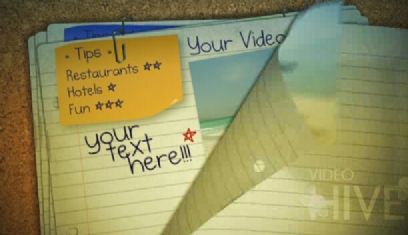 • Tips •
Restaurants ☆☆
Hotels ☆
Fun ☆☆☆
Your Video
your
text
here!!!
VIDEO
HIVE